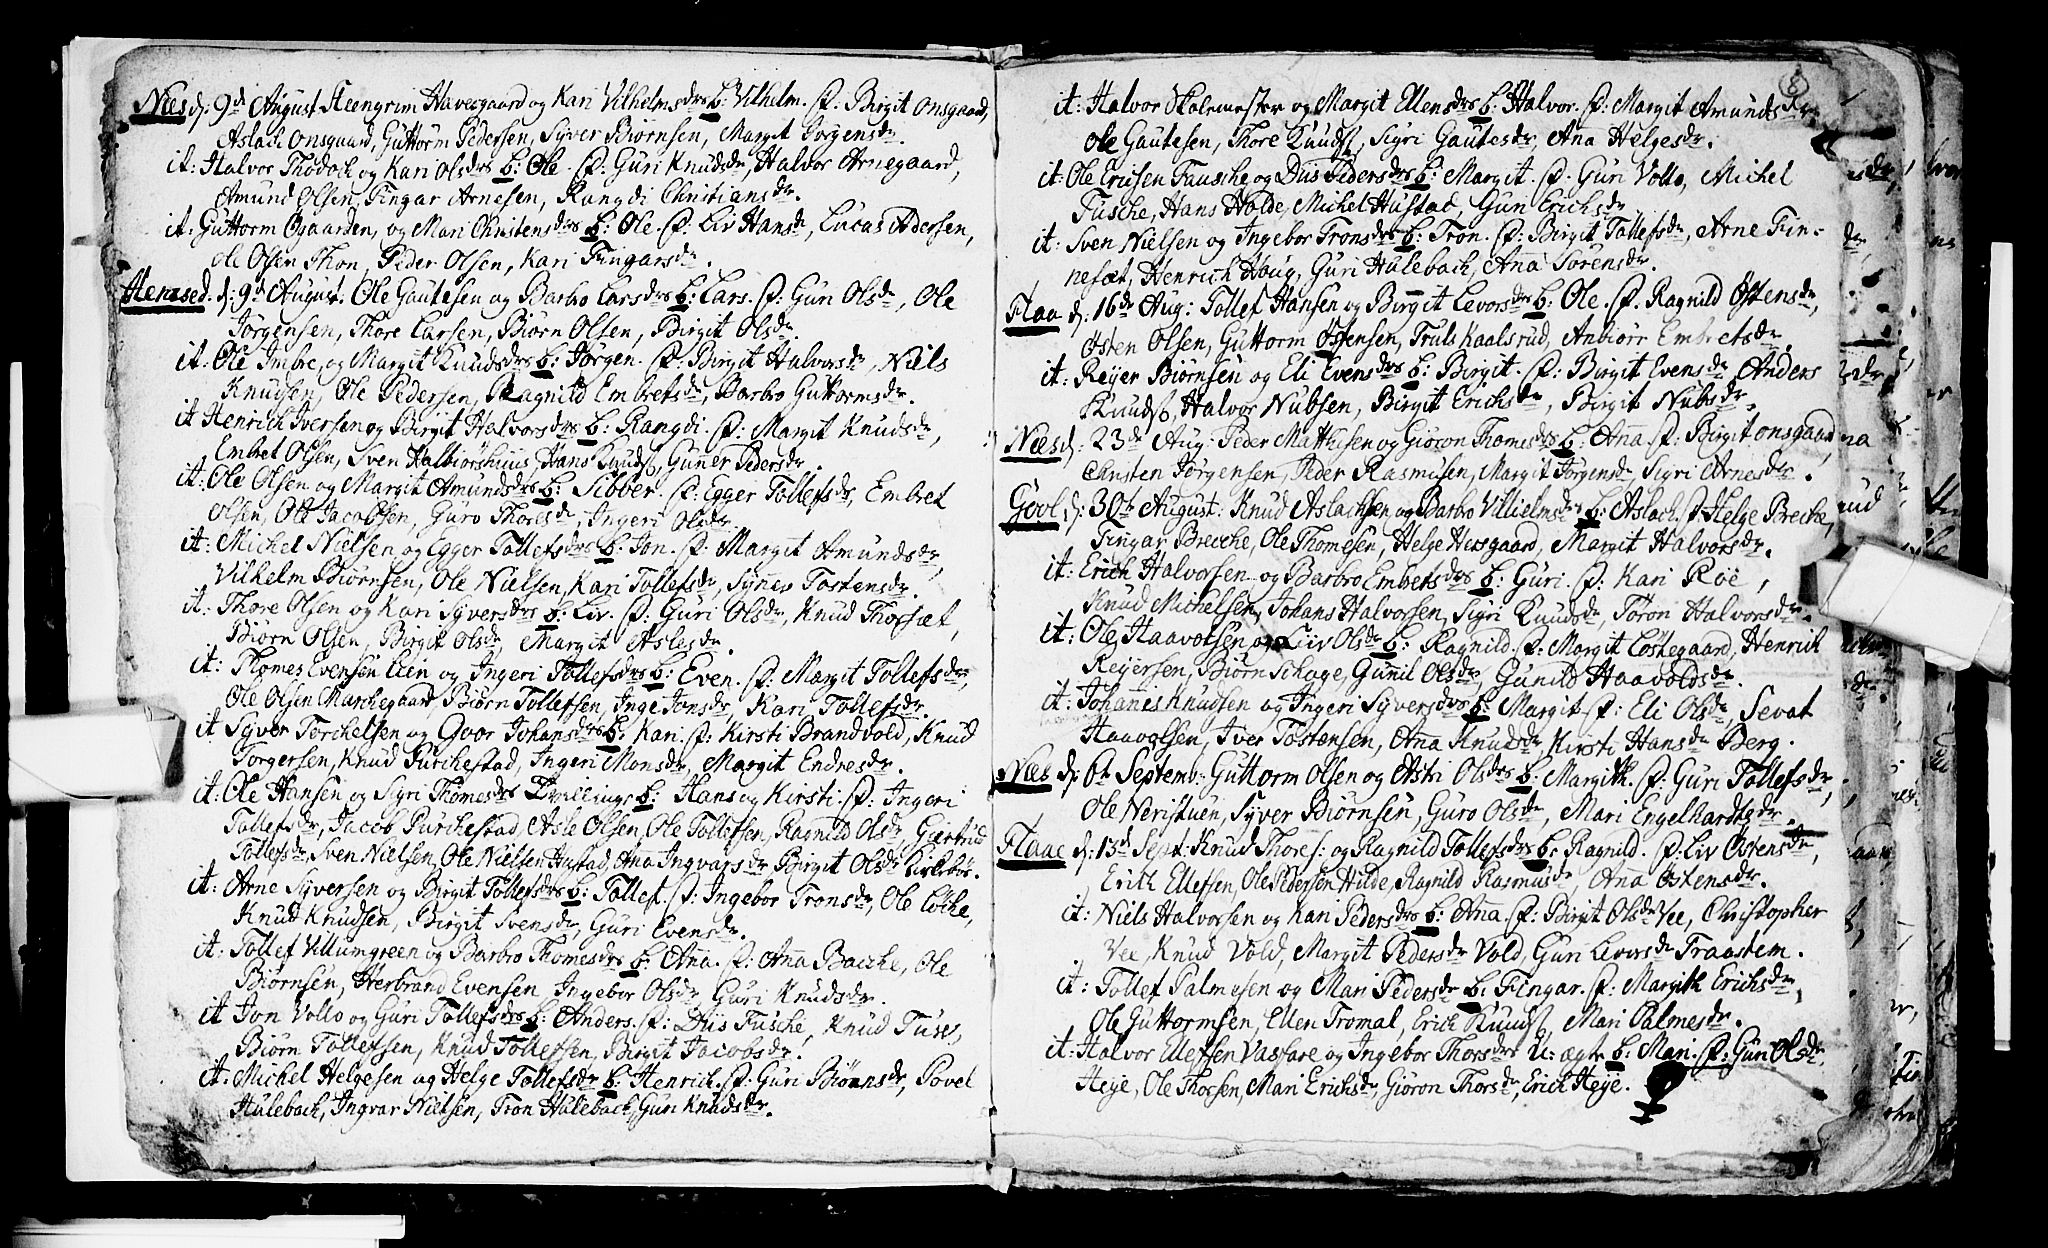 Næs d: 9de August Steengrim Havesgaard og Kari Vilhelmsdrs b: Vilhelm. f: Birgit Onsgaard,
Aslach Onsgaard, Guttorm Pedersen, Syver Biørnsen, Margit Jørgensdr.
it: Halvor Thodoch og Kari Olsdrs b: Ole. f: Guri Knudsdr, Halvor Arnegaard,
Amund Olsen, Fingar Arnesen, Rangdi Christiansdr.
it: Guttorm Øgaarden, og Mari Christensdrs b: Ole. f: Liv Hansdr, Lucas Adersen,
Ole Olsen Thon, Peder Olsen, Kari Fingarsdr.
Hemsed. d: 9de August. Ole Gautesen og Barbro Larsdrs b: Lars. f: Guri Olsdr, Ole
Jørgensen, Thore Larsen, Biørn Olsen, Birgit Olsdr.
it: Ole Imbe, og Margit Knudsdrs b: Jørgen. f: Birgit Halvorsdr, Niels
Knudsen, Ole Pedersen, Ragnild Embretsdr, Barbro Guttormsdr.
it Henrich Iversen og Birgit Halvorsdrs b: Rangdi. f: Margit Knudsdr,
Embret Olsen, Sven Halbiørshuus, Hans Knuds, Guner Pedersdr.
it: Ole Olsen og Margit Amundsdrs b: Sibber. f: Egger Tollefsdr, Embret
Olsen, Ole Jacobsen, Guro Thoresdr, Ingeri Olsdr.
it: Michel Nielsen og Egger Tollefsdrs b: Jon. f: Margit Amundsdr,
Vilhelm Biørnsen, Ole Nielsen, Kari Tollefsdr, Synev Tostensdr.
it: Thore Olsen og Kari Syversdrs b: Liv. f: Guri Olsdr, Knud Thorsæt,
Biørn Olsen, Birgit Olsdr, Margit Aslesdr.
it: Thomes Evensen Eein og Ingeri Tollefsdrs b: Even. f: Margit Tollefsdr,
Ole Olsen Marchegaard, Biørn Tollefsen, Inge Jonsdr, Kari Tollefsdr.
it Syver Torchelsen og Goor Johansdrs b: Kari. f: Kirsti Brandvold, Knud
Torgersen, Knud Purchestad, Ingeri Monsdr, Margit Endresdr.
it: Ole Hansen og Sigri Thomesdrs Tvillinge b: Hans og Kirsti. f: Ingeri
Tollefsdr, Jacob Purchestad, Asle Olsen, Ole Tollefsen, Ragnild Olsdr, Giertrud
Tollefsdr, Sven Nielsen, Ole Nielsen Hustad, Anna Ingvarsdr Birgit Olsdr Kirkebøe.
it: Arne Syversen og Birgit Tollefsdrs b: Tollef. f: Ingebor Tronsdr, Ole Løche,
Knud Knudsen, Birgit Svensdr, Guri Evensdr.
it: Tollef Villumgreen og Barbro Thomesdrs b: Anna. f: Anna Bacche, Ole
Biørnsen, Herbrand Evensen Ingebor Olsdr Guri Knudsdr.
it Jon Vollo og Guri Tollefsdrs b: Anders. f: Diis Fusche, Knud Tuset,
Biørn Tollefsen, Knud Tollefsen, Birgit Jacobsdr.
it: Michel Helgesen og Helge Tollefsdr b: Henrich. f: Guri Biørnsdr, Povel
Hulebach, Ingvar Nielsen, Tron Hulebach, Guri Knudsdr.
8
it: Halvor Skolemester og Margit Ellensdrs b: Halvor. f: Margit Amundsdr
Ole Gautesen, Thore Knuds, Sigri Gautesdr, Ana Helgesdr.
it: Ole Ericsen Fausche og Diis Pedersdrs b: Margit. f: Guri Vollo, Michel
Fusche, Hans Holde, Michel Hustad, Guri Erichsdr
it: Sven Nielsen og Ingebor Tronsdrs b: Tron. f: Birgit Tollefsdr, Arne Fin-
nesæt, Henrich Houg, Guri Hulebach, Anna Sørensdr.
Flaa d: 16de Aug: Tollef Hansen og Birgit Levorsdrs b: Ole. f: Ragnild Østensdr,
Østen Olsen, Guttorm Østensen, Truls Kaalsrud, Anbiørr Embretsdr.
it: Reyer Biørnsen og Eli Evensdrs b: Birgit. f: Birgit Evensdr, Anders
Knuds, Halvor Nubsen, Birgit Erichsdr, Birgit Nubsdr.
Næs d: 23de Aug: Peder Matthisen og Giøron Thomesdrs b: Anna f: Birgit Onsgaard,
Christen Jørgensen, Peder Rasmusen, Margit Jørgensdr, Sigri Arnesdr.
Gool d: 30te August: Knud Aslachsen og Barbo Villielmsdrs b: Aslach. f: Helge Breche,
Fingar Brecche, Ole Thomesen, Helge Hersgaard, Margit Halvorsdr.
it: Erich Halvorsen og Barbro Embretsdrs b: Guri. f: Kari Røe,
Knud Michelsen, Johans Halvorsen, Sigri Knudsdr, Tøron Halvorsdr.
it: Ole Haavolsen og Liv Olsdr b: Ragnild. f: Margit Løstegaard, Henrich
Reyersen, Biørn Schage, Gunil Olsdr, Gunild Haavoldsdr.
it: Johannes Knudsen og Ingeri Syversdrs b: Margit. f: Eli Olsdr, Sevat
Haavolsen, Iver Tostensen, Anna Knudsdr, Kirsti Hansdr Berg.
Næs d: 6te Septemb: Guttorm Olsen og Astri Olsdrs b: Margith. f: Guri Tollefsdr,
Ole Neristuen, Syver Biørnsen, Guro Olsdr, Mari Engelhardtsdr.
Flaae d: 13de Sept: Knud Thores: og Ragnild Tollefsdrs b: Ragnild. f: Liv Østensdr,
Erich Ellefsen, Ole Pedersen Hilde, Ragnild Rasmusdr, Anna Østensdr.
it: Niels Halvorsen og Kari Pedersdrs b: Anna. f: Birgit Olsdr Vee, Christopher
Vee, Knud Vold, Margit Pedersdr Vold, Guri Levorsdr Traastem.
it: Tollef Palmesen og Mari Pedersdr b: Fingar. f: Margith Erichsdr,
Ole Guttormsen, Ellen Tromal, Erich Knuds, Mari Palmesdr.
it: Halvor Ellefsen Vasfare og Ingebor Thorsdrs U: ægte b: Mari. f: Guri Olsdr
Heye, Ole Thorsen, Mari Erichsdr, Giøron Thorsdr, Erich Heye.